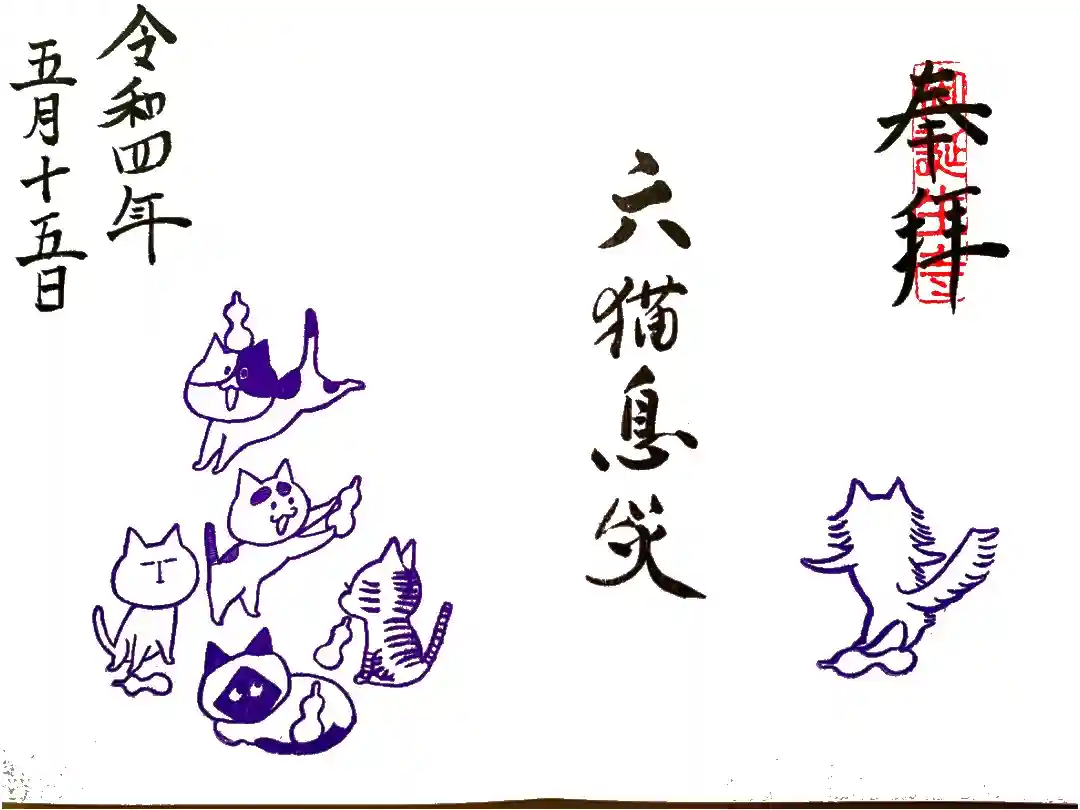 奉拝
誕生寺
六猫息災
令和四年
五月十五日